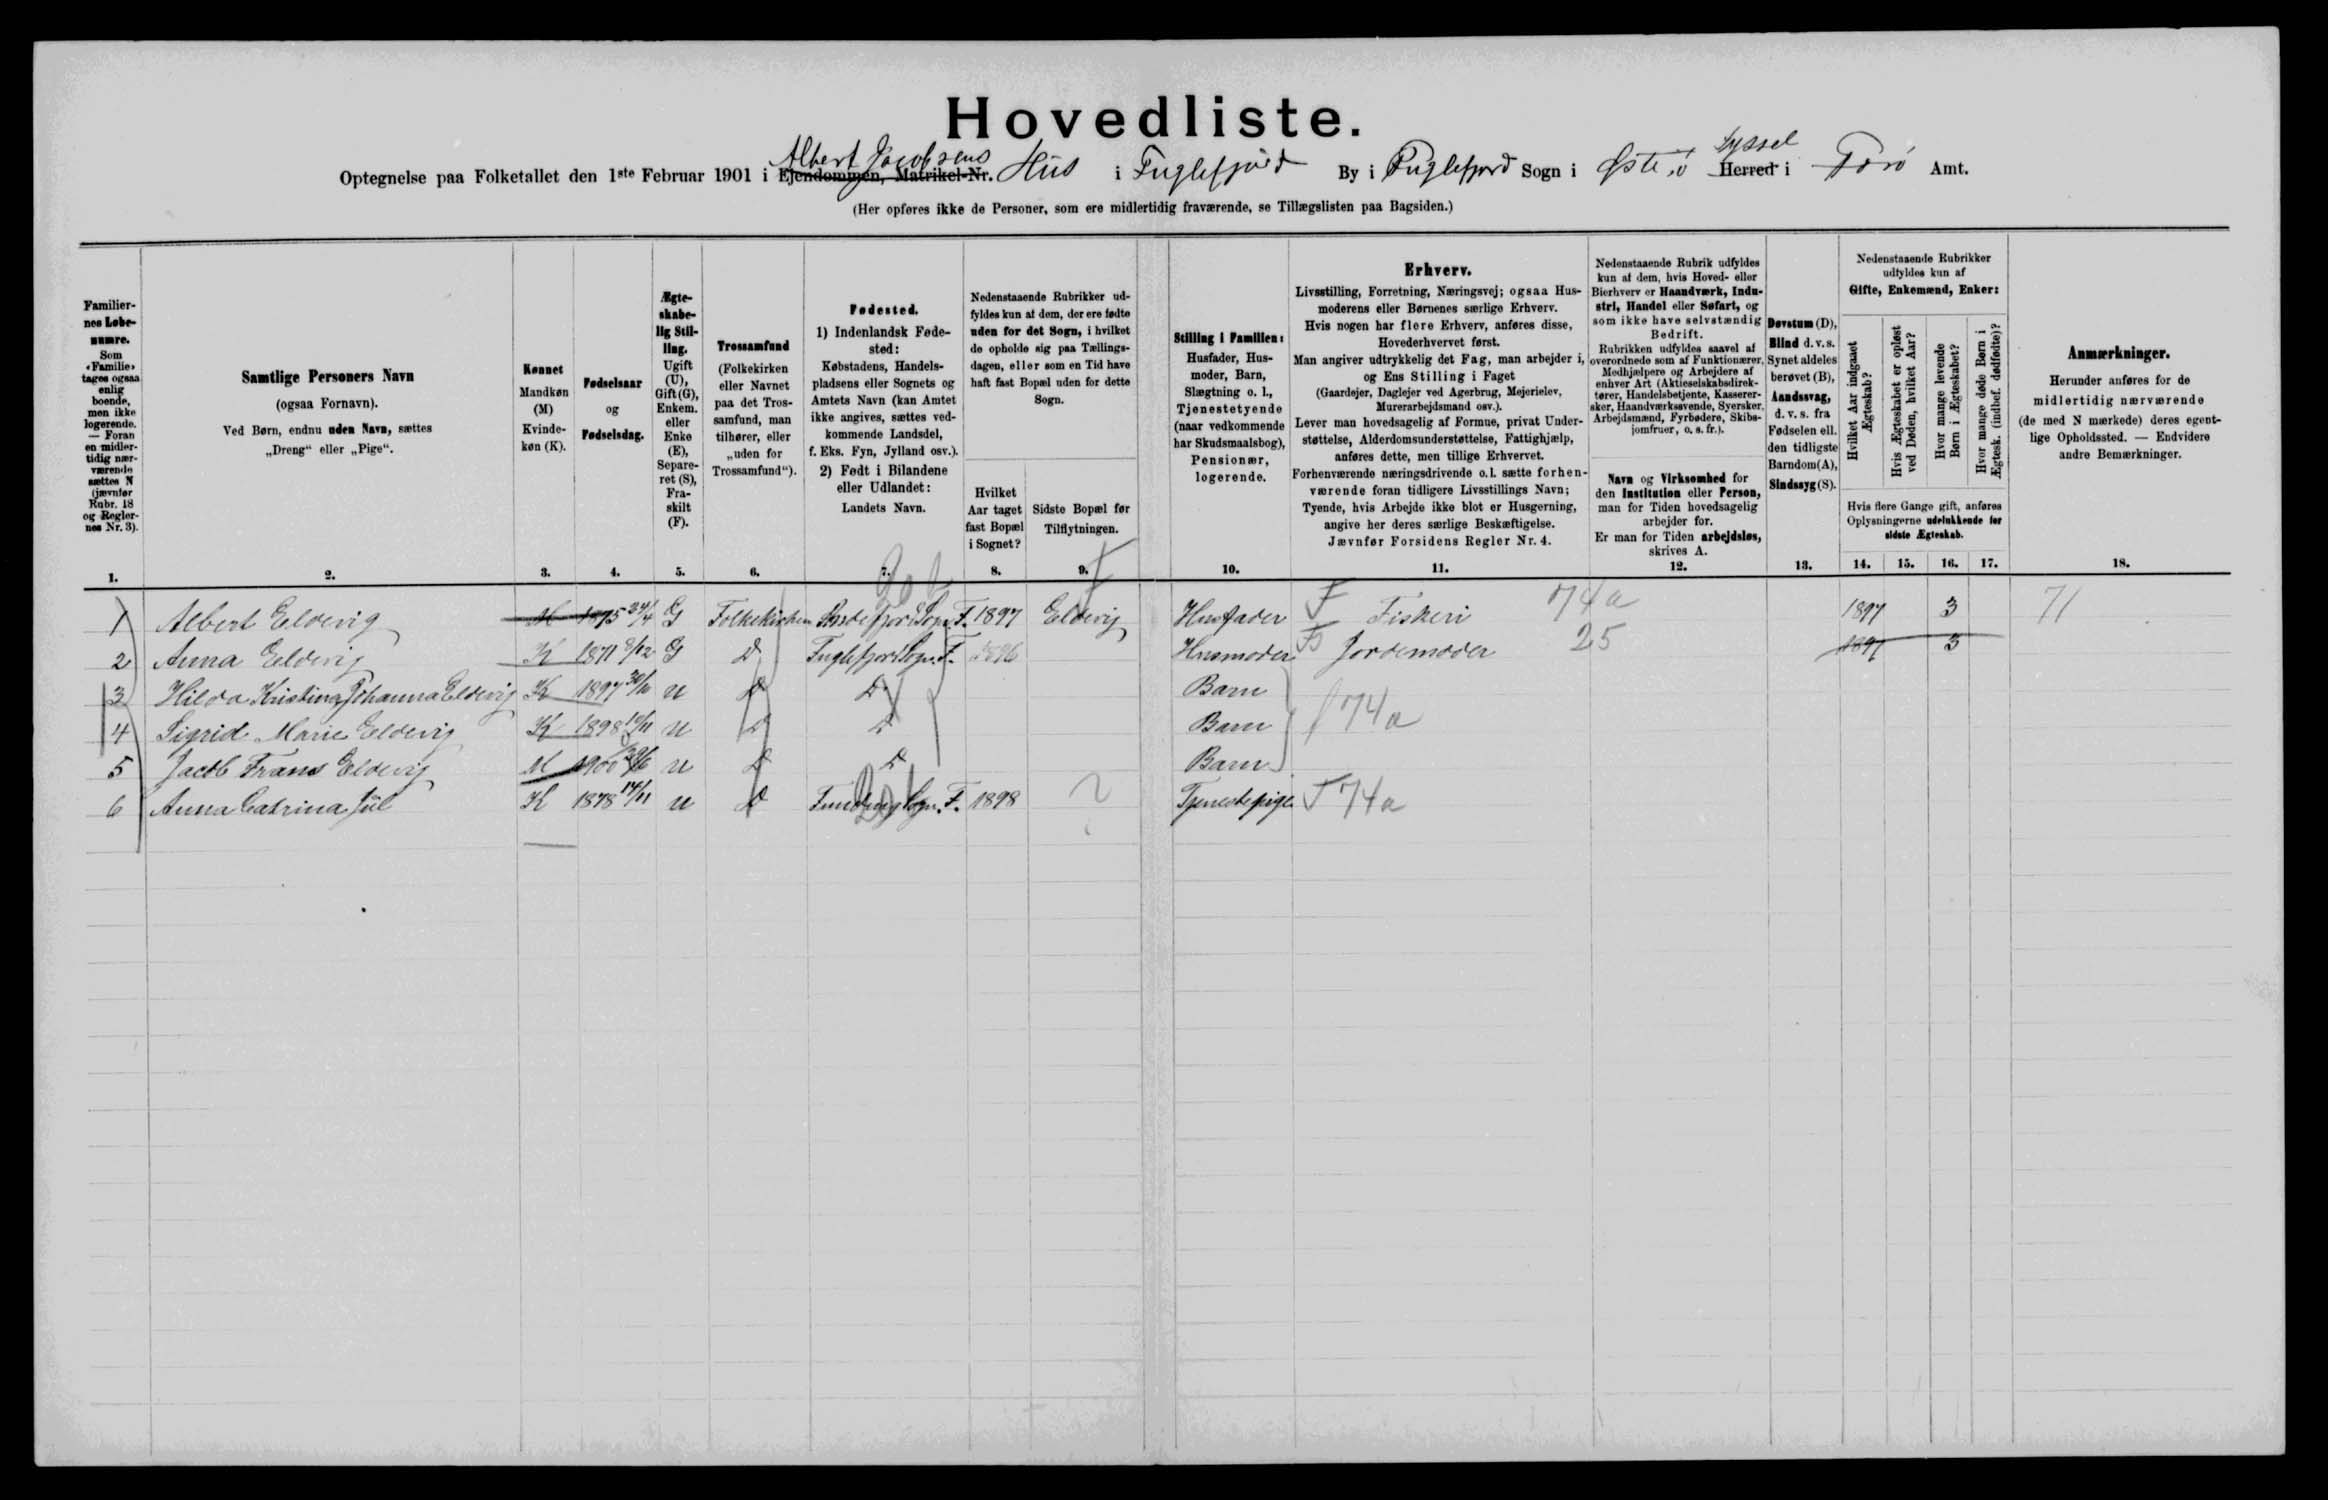 Hovedliste.
Albert Jacobsens Syssel
Optegnelse paa Folketallet den 1ste Februar 1901 i Ejendommen, Matrikel-Nr. Hus i Fuglefjord By i Fuglefjord Sogn i Østerø Herred i Færø Amt.
(Her opføres ikke de Personer, som ere midlertidig fraværende, se Tillægslisten paa Bagsiden.)
Familier-
nes Løbe-
numre.
Som
«Familie»
tages ogsaa
enlig
boende,
men ikke
logerende.
— Foran
en midler-
tidig nær-
værende
sættes N
(jævnfør
Rubr. 18
og Regler-
nes Nr. 3).
1.
Samtlige Personers Navn
(ogsaa Fornavn).
Ved Børn, endnu uden Navn, sættes
„Dreng“ eller „Pige“.
2.
Kønnet
Mandkøn
(M)
Kvinde-
køn (K).
3.
Fødselsaar
og
Fødselsdag.
4.
Ægte-
skabe-
lig Stil-
ling.
Ugift
(U),
Gift (G),
Enkem.
eller
Enke
(E),
Separe-
ret (S),
Fra-
skilt
(F).
5.
Trossamfund
(Folkekirken
eller Navnet
paa det Tros-
samfund, man
tilhører, eller
„uden for
Trossamfund“).
6.
Fødested.
1) Indenlandsk Føde-
sted:
Købstadens, Handels-
pladsens eller Sognets og
Amtets Navn (kan Amtet
ikke angives, sættes ved-
kommende Landsdel,
f. Eks. Fyn, Jylland osv.).
2) Født i Bilandene
eller Udlandet:
Landets Navn.
7.
Nedenstaaende Rubrikker ud-
fyldes kun af dem, der ere fødte
uden for det Sogn, i hvilket
de opholde sig paa Tællings-
dagen, eller som en Tid have
haft fast Bopæl uden for dette
Sogn.
Hvilket
Aar taget
fast Bopæl
i Sognet?
8.
Sidste Bopæl før
Tilflytningen.
9.
Stilling i Familien:
Husfader, Hus-
moder, Barn,
Slægtning o. l.,
Tjenestetyende
(naar vedkommende
har Skudsmaalsbog),
Pensionær,
logerende.
10.
Erhverv.
Livsstilling, Forretning, Næringsvej; ogsaa Hus-
moderens eller Børnenes særlige Erhverv.
Hvis nogen har flere Erhverv, anføres disse,
Hovederhvervet først.
Man angiver udtrykkelig det Fag, man arbejder i,
og Ens Stilling i Faget
(Gaardejer, Daglejer ved Agerbrug, Mejerielev,
Murerarbejdsmand osv.).
Lever man hovedsagelig af Formue, privat Under-
støttelse, Alderdomsunderstøttelse, Fattighjælp,
anføres dette, men tillige Erhvervet.
Forhenværende næringsdrivende o. l. sætte forhen-
værende foran tidligere Livsstillings Navn;
Tyende, hvis Arbejde ikke blot er Husgerning,
angive her deres særlige Beskæftigelse.
Jævnfør Forsidens Regler Nr. 4.
11.
Nedenstaaende Rubrik udfyldes
kun af dem, hvis Hoved- eller
Bierhverv er Haandværk, Indu-
stri, Handel eller Søfart, og
som ikke have selvstændig
Bedrift.
Rubrikken udfyldes saavel af
overordnede som af Funktionærer,
Medhjælpere og Arbejdere af
enhver Art (Aktieselskabsdirek-
tører, Handelsbetjente, Kasserer-
sker, Haandværkssvende, Syersker,
Arbejdsmænd, Fyrbødere, Skibs-
jomfruer, o. s. fr.).
Navn og Virksomhed for
den Institution eller Person,
man for Tiden hovedsagelig
arbejder for.
Er man for Tiden arbejdsløs,
skrives A.
12.
Døvstum (D),
Blind d. v. s.
Synet aldeles
berøvet (B),
Aandssvag,
d. v. s. fra
Fødselen ell.
den tidligste
Barndom (A),
Sindssyg (S).
13.
Nedenstaaende Rubrikker
udfyldes kun af
Gifte, Enkemænd, Enker:
Hvilket Aar indgaaet
Ægteskab?
Hvis Ægteskabet er opløst
ved Døden, hvilket Aar?
Hvor mange levende
Børn i Ægteskabet?
Hvor mange døde Børn i
Ægtesk. (indbef. dødfødte)?
Hvis flere Gange gift, anføres
Oplysningerne udelukkende for
sidste Ægteskab.
14. 15. 16. 17.
Anmærkninger.
Herunder anføres for de
midlertidig nærværende
(de med N mærkede) deres egent-
lige Opholdssted. — Endvidere
andre Bemærkninger.
18.
1 Albert Eldevig M 1875 24/4 G Folkekirken F. 1897 Eldevig Husfader F Fiskeri 74a 1897 3 71
2 Anna Eldevig K 1871 8/12 G D Fuglefjord Sogn. F. 1896 Husmoder Jordemoder 25 1897 3
3 Hilda Kristina Johanna Eldevig K 1897 30/10 U D D Barn
4 Sigrid Marie Eldevig K 1898 10/11 U D D Barn 74a
5 Jacob Frans Eldevig M 1900 U D D Barn
6 Anna Catrina Jül K 1878 14/11 U D Funding Sogn. F. 1898 ? Tjenestepige F 74a